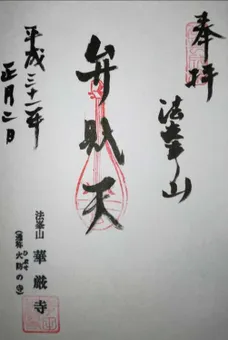 奉拝
法峯山
弁財天
平成三十一年
正月二日
法峯山
華厳寺